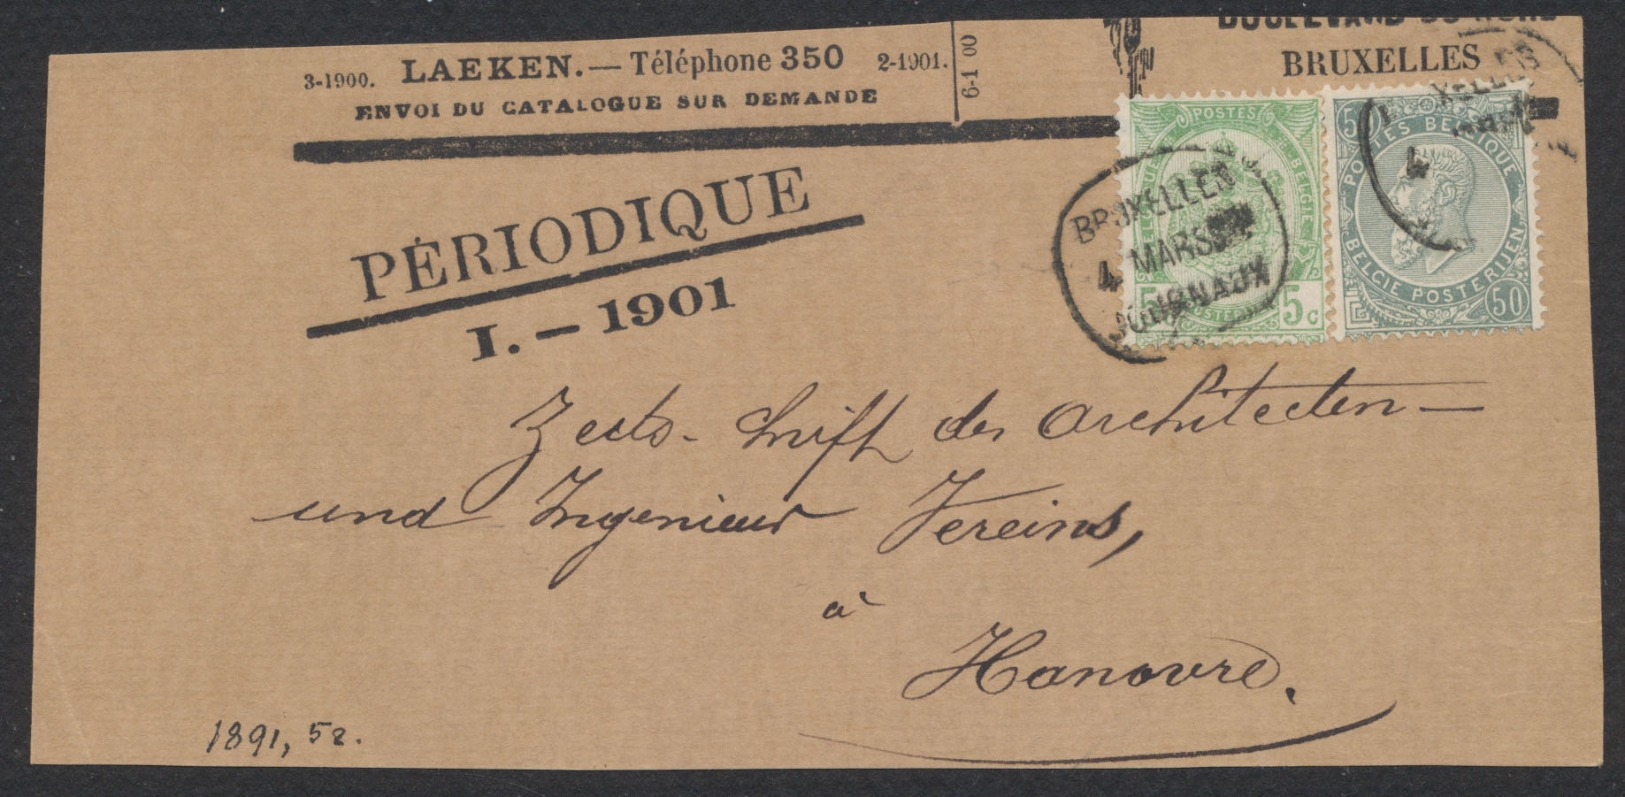 BOULEVARD DU NORD
BRUXELLES
3-1900. LAEKEN.— Téléphone 350 2-1901.
6-1 00
ENVOI DU CATALOGUE SUR DEMANDE
PÉRIODIQUE
I. — 1901
POSTES
BELGIQUE
5 5c
BRUXELLES
4 MARS
JOURNAUX
50 50
POSTES BELGIQUE
BELGIE POSTERIJEN
4
Zeits-chrift des Architecten —
und Ingenieur Vereins,
à
Hanovre.
1891, 52.